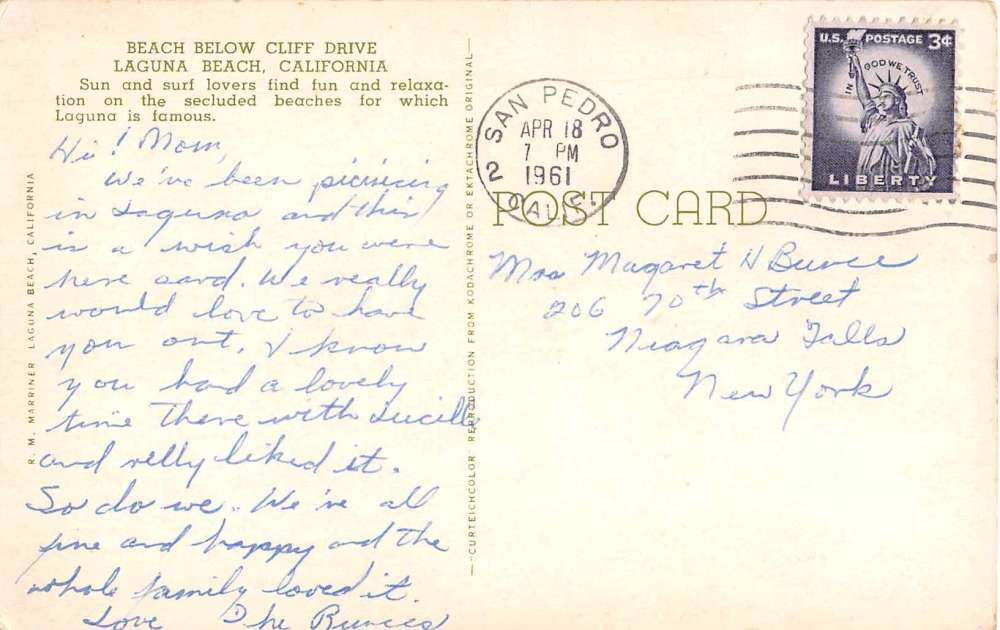 BEACH BELOW CLIFF DRIVE
LAGUNA BEACH, CALIFORNIA
Sun and surf lovers find fun and relaxa-
tion on the secluded beaches for which
Laguna is famous.
Hi! Mom,
We've been picnicing
in Laguna and this
is a wish you were
here card. We really
would love to have
you out. I know
you had a lovely
time there with Lucille
and relly liked it.
So do we. We're all
fine and happy and the
whole family loved it.
Love The Bunces
R. M. MARRINER LAGUNA BEACH, CALIFORNIA
"CURTEICHCOLOR" REPRODUCTION FROM KODACHROME OR EKTACHROME ORIGINAL
SAN PEDRO
APR 18
7 PM
1961
2 CALIF.
U.S. POSTAGE 3¢
IN GOD WE TRUST
LIBERTY
POST CARD
Mrs Magaret H Bunce
206 70th Street
Niagara Falls
New York